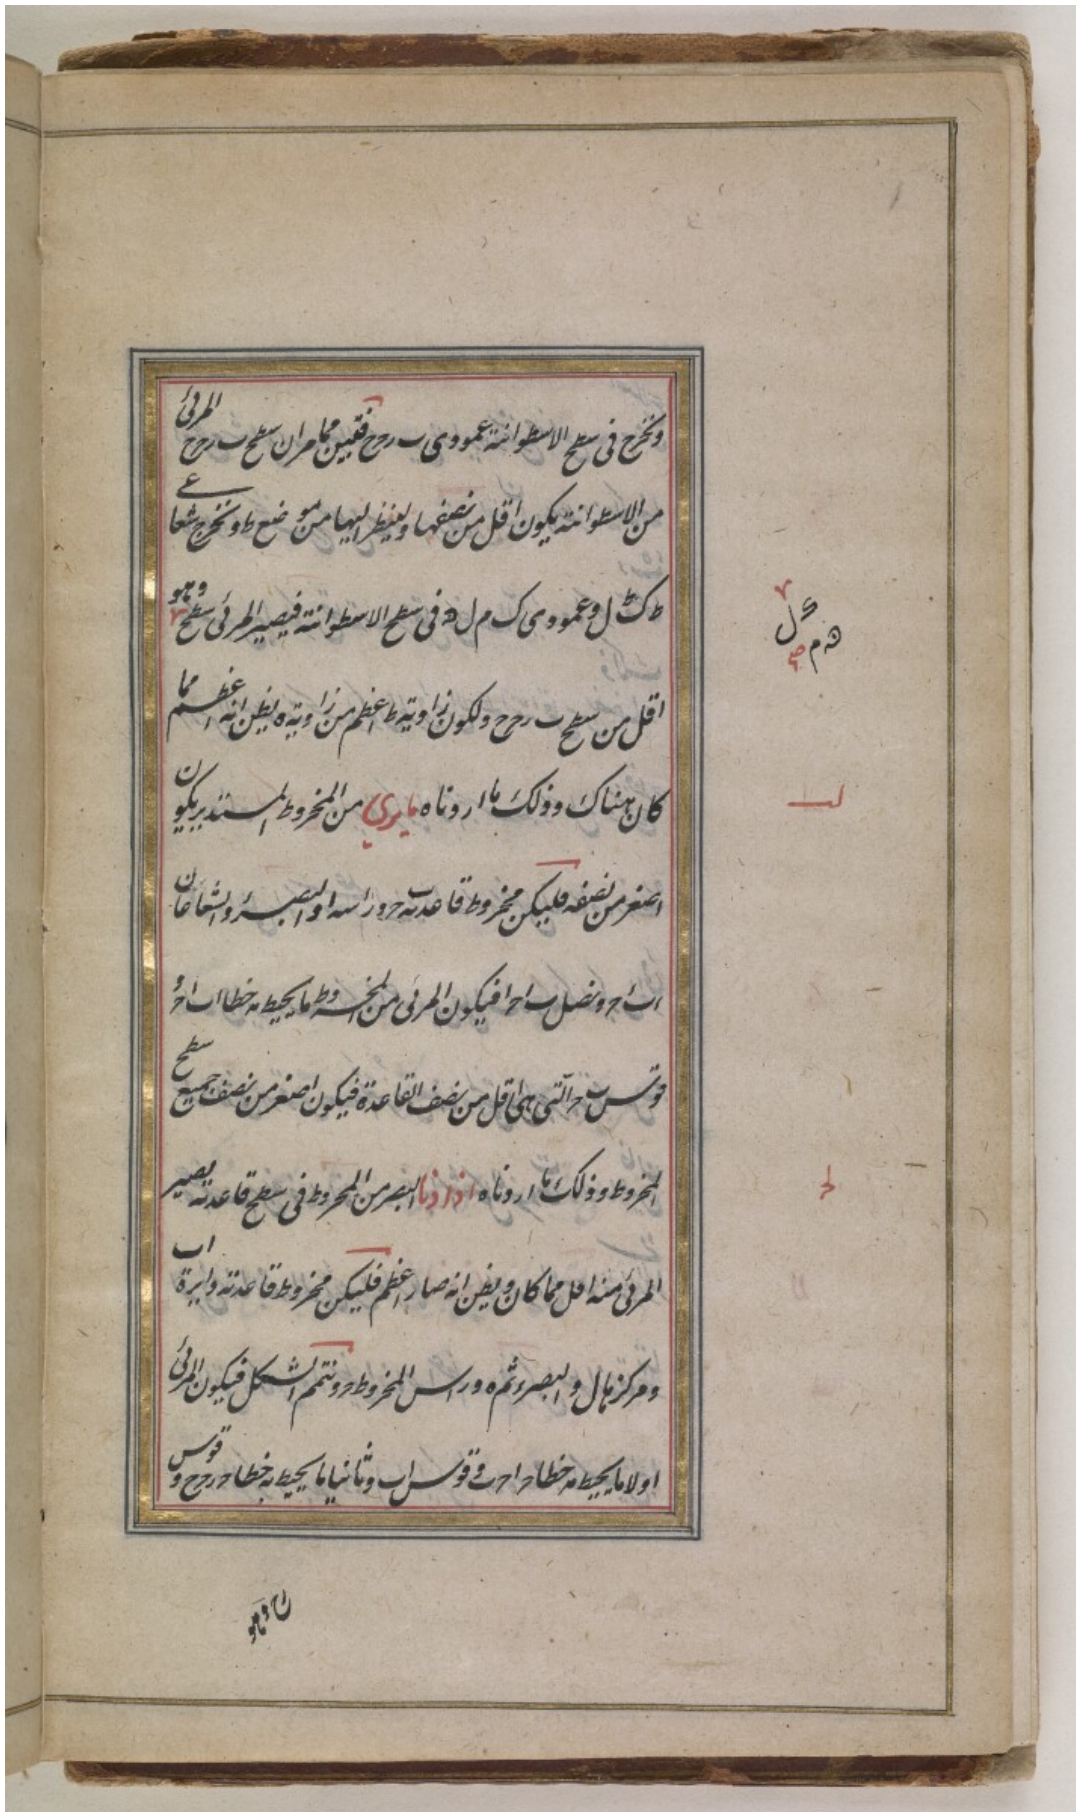 ونخرج فى سطح الاسطوانة عمودى ب ر ح ح فتبين مما مر ان سطح ب ر ح ح المرئى
من الاسطوانة يكون اقل من نصفها ولينظر اليها من موضع ط ونخرج شعاعى
ط ك ط ل وعمودى ك م ل ه فى سطح الاسطوانة فيصير المرئى سطح وهو
ك ل ه م صح
اقل من سطح ب ر ح ح ولكون زاوية ط اعظم من زاوية ه يظن انه اعظم مما
كان هناك وذلك ما اردناه ما يرى من المخروط المستدير يكون
لب
اصغر من نصفه فليكن مخروط قاعدته ب ح وراسه ا والبصر ء والشعاعان
ونصل ب ا ح ا فيكون المرئى من المخروط ما يحيط به خطا ا ب ا ح و
قوس ب ح التى هى اقل من نصف القاعدة فيكون اصغر من نصف جميع سطح
المخروط وذلك ما اردناه اذا دنا البصر من المخروط فى سطح قاعدته يصير
لح
المرئى منه اقل مما كان ويظن انه صار اعظم فليكن مخروط قاعدته دايرة ا ب
ومركزها ل والبصر ء ثم ه وراس المخروط ح ونتمم الشكل فيكون المرئى
اولا ما يحيط به خطا ح ا ح ب وقوس ا ب وثانيا ما يحيط به خطا ح ر ح ح و قوس
ر ح وهو